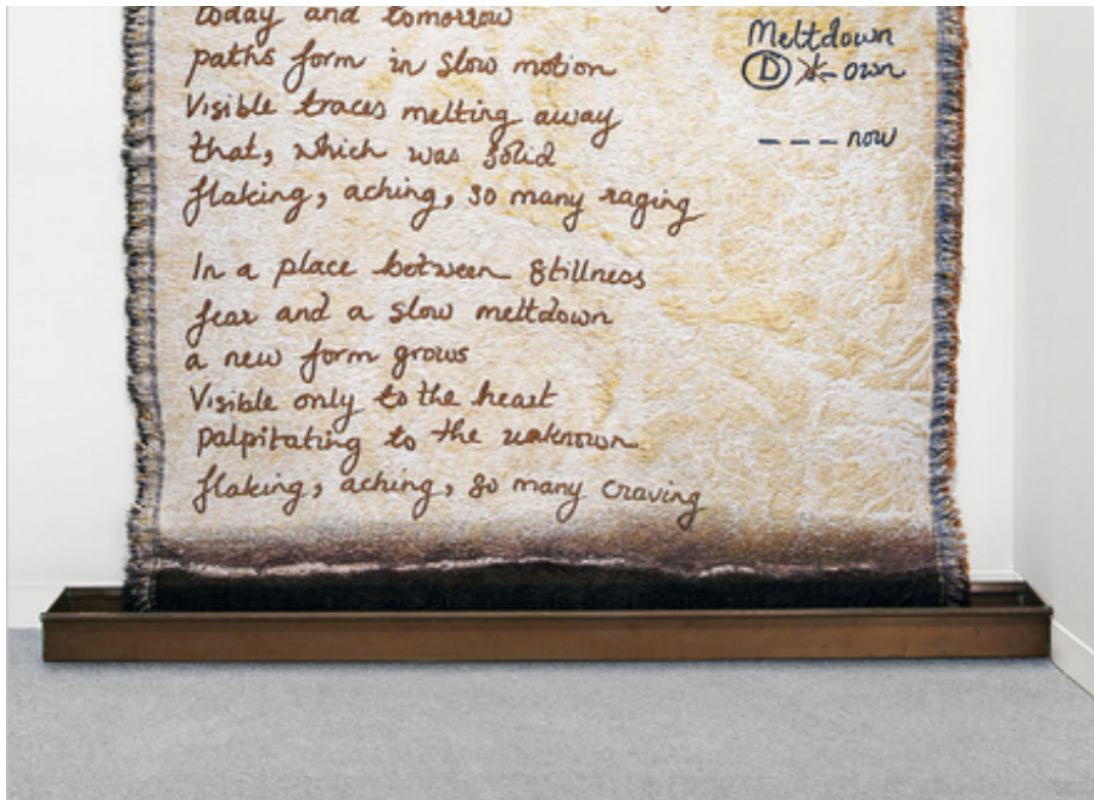 today and tomorrow
paths form in slow motion
Visible traces melting away
that, which was solid
flaking, aching, so many raging
In a place between stillness
fear and a slow meltdown
a new form grows
Visible only to the heart
palpitating to the unknown
flaking, aching, so many craving
Meltdown
D own
--- now